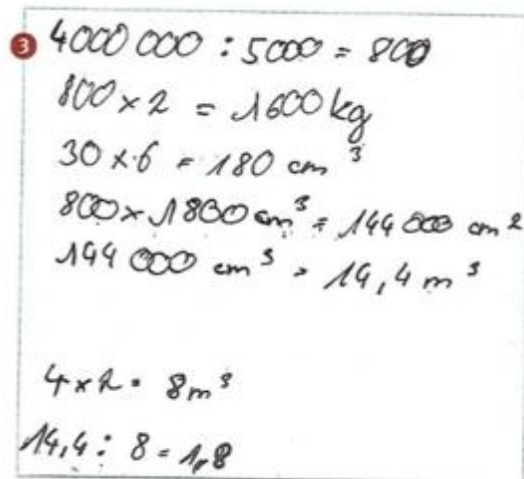 3 4000 000 : 5000 = 800
800 x 2 = 1600 kg
30 x 6 = 180 cm³
800 x 1800 cm³ = 144 000 cm²
144 000 cm³ = 14,4 m³
4 x 2 = 8 m³
14,4 : 8 = 1,8